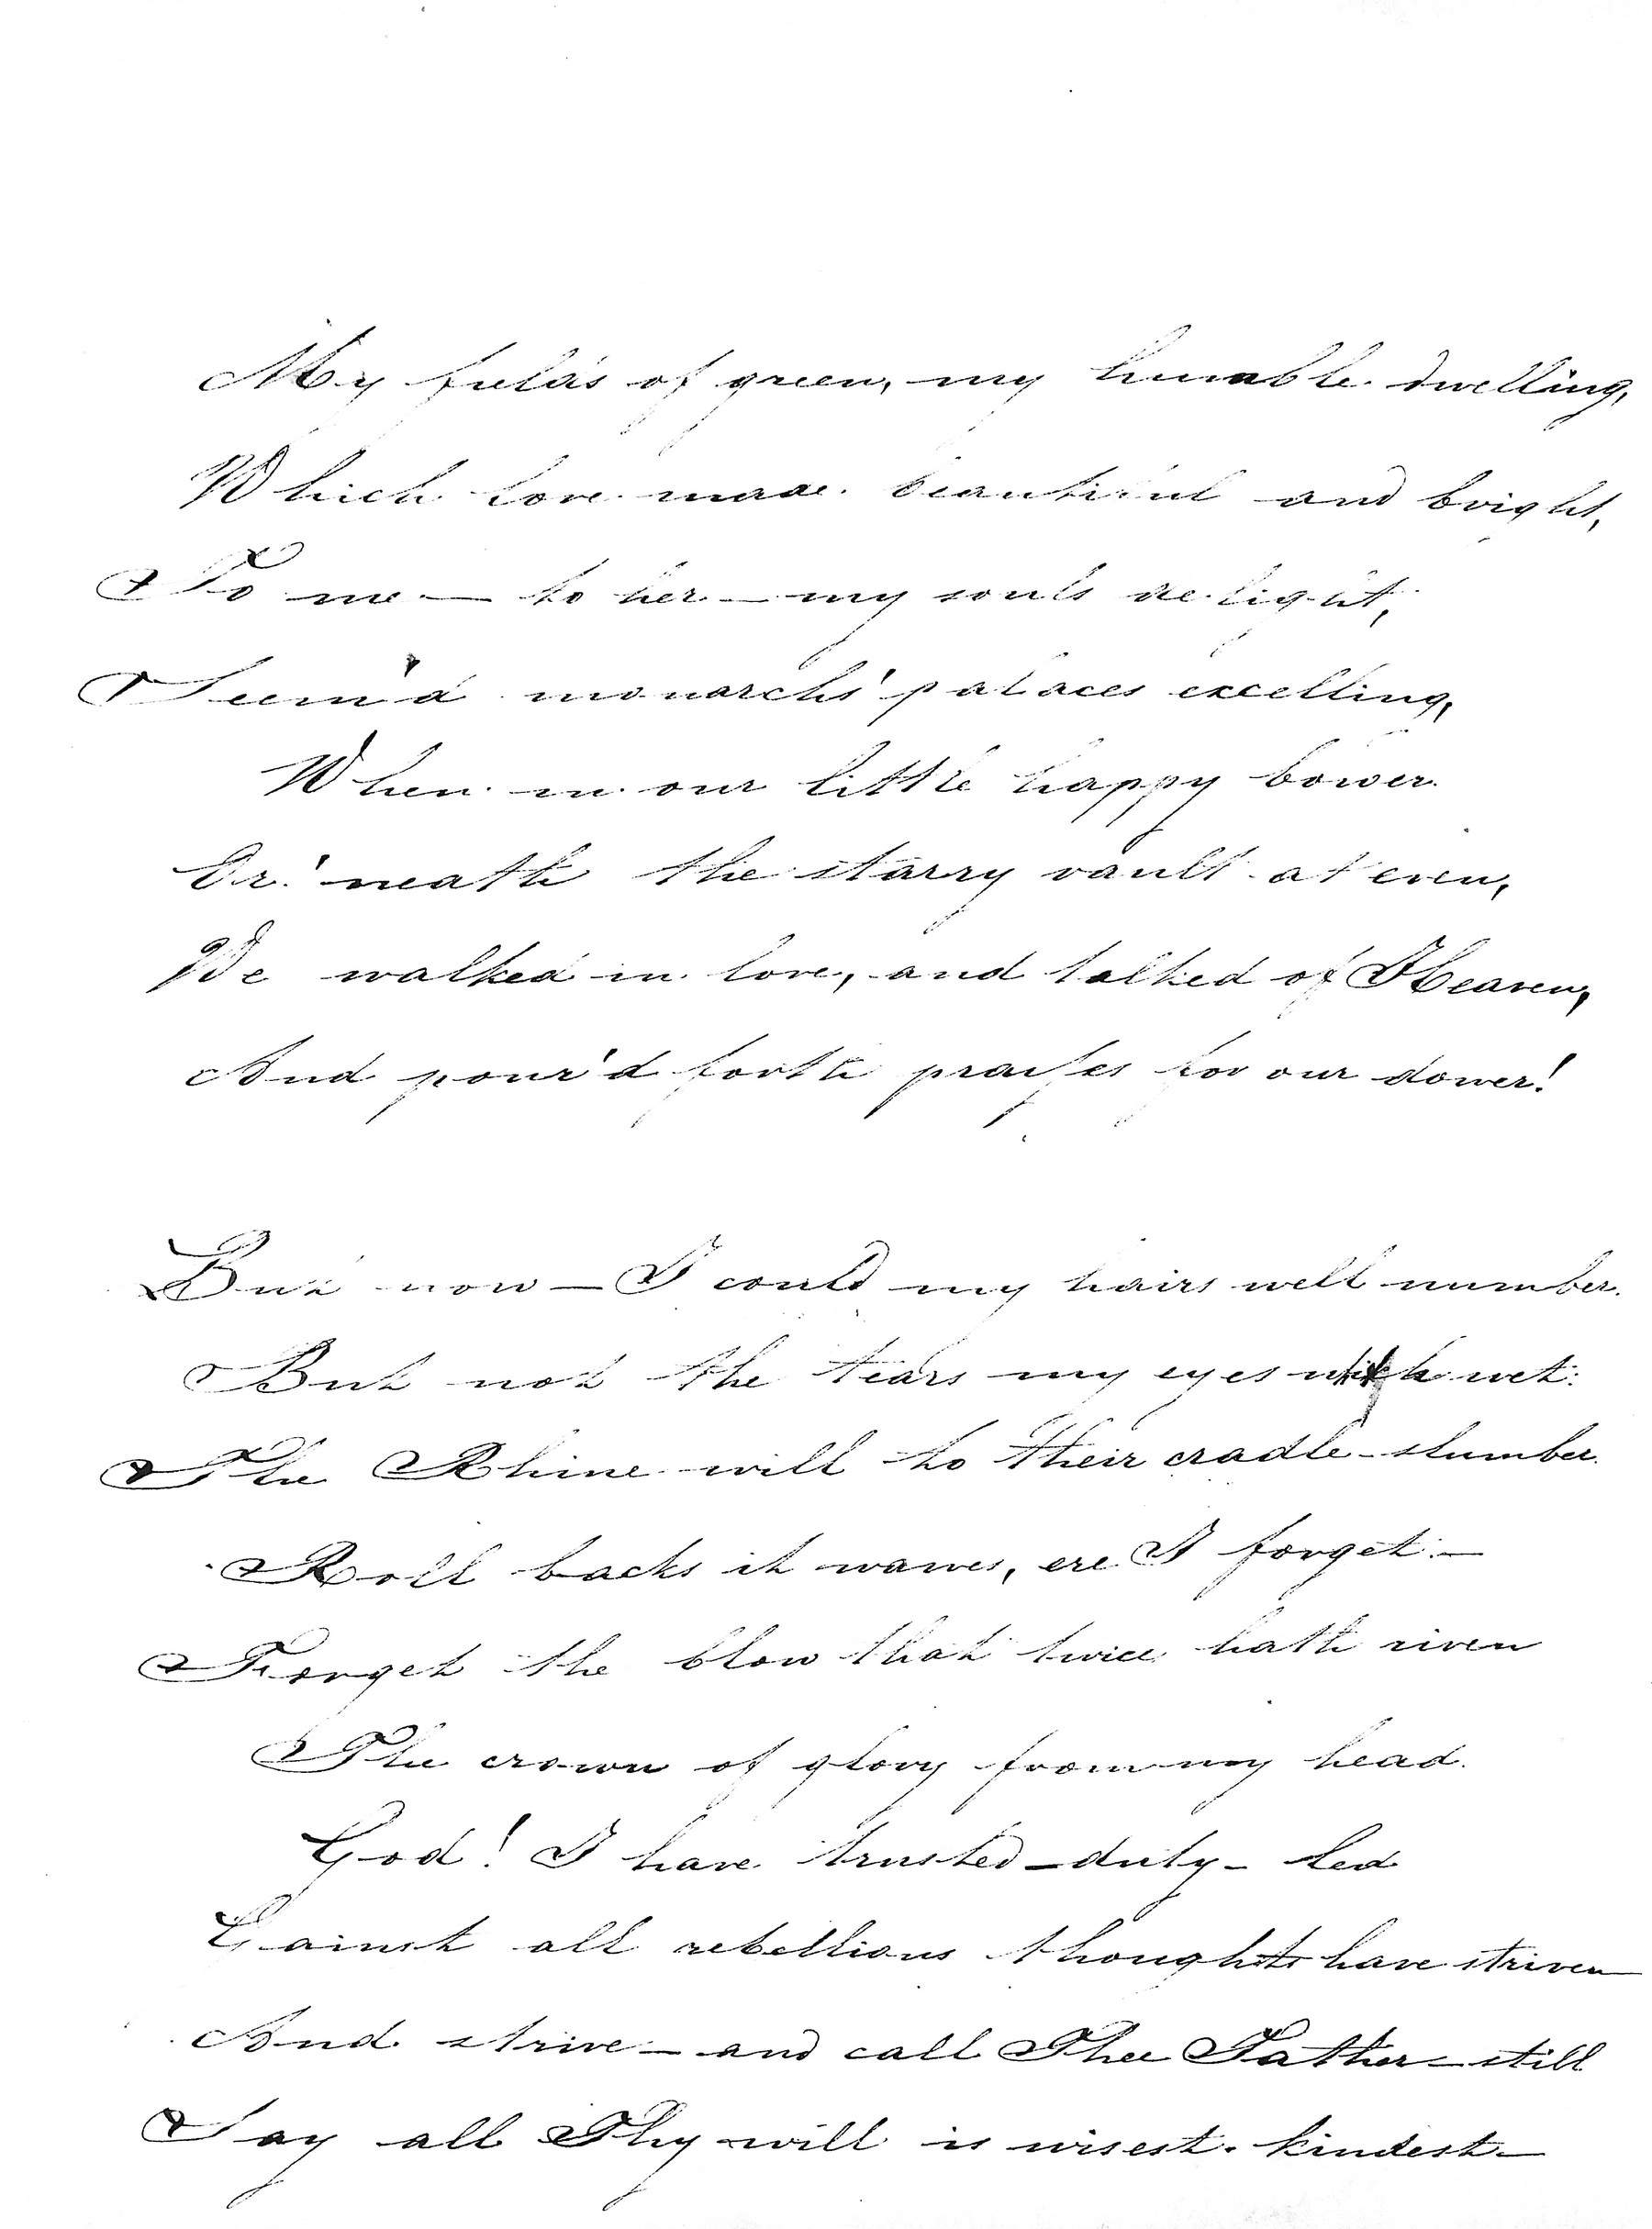 My fields of green, my humble dwelling,
Which love made beautiful and bright,
To me — to her — my souls delight,
Seem'd monarchs' palaces excelling,
When in our little happy bower
Or 'neath the starry vault at even,
We walked in love, and talked of Heaven,
And pour'd forth praises for our dower!
But now — I could my hairs well number.
But not the tears my eyes wh wet:
The Rhine will to their cradle-slumber
Roll backs it waves, ere I forget:—
Forget the blow that twice hath riven
The crown of glory from my head.
God! I have trusted — duty — led
Gainst all rebellious thoughts have striven
And strive — and call Thee Father — still
Say all Thy will is wisest. kindest —